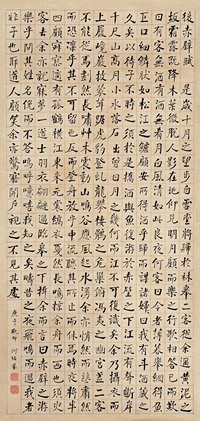 後赤壁賦 是歲十月之望步自雪堂將歸於臨皋二客從余過黃泥之
坂霜露既降木葉盡脫人影在地仰見明月顧而樂之行歌相答已而歎
曰有客無酒有酒無肴月白風清如此良夜何客曰今者薄暮舉網得魚
巨口細鱗狀如松江之鱸顧安所得酒乎歸而謀諸婦婦曰我有斗酒藏之
久矣以待子不時之須於是攜酒與魚復游於赤壁之下江流有聲斷岸
千尺山高月小水落石出曾日月之幾何而江山不可復識矣余乃攝衣而
上履巉巖披蒙茸踞虎豹登虬龍攀栖鶻之危巢俯馮夷之幽宮蓋二客
不能從焉劃然長嘯草木震動山鳴谷應風起水涌余亦悄然而悲肅然
而恐凜乎其不可留也反而登舟放乎中流聽其所止而休焉時夜將半
四顧寂寥適有孤鶴橫江東來翅如車輪玄裳縞衣戛然長鳴掠余舟而西也須臾
客去余亦就睡夢一道士羽衣翩躚過臨皋之下揖余而言曰赤壁之游
樂乎問其姓名俛而不答嗚呼噫嘻我知之矣疇昔之夜飛鳴過我者
非子也耶道人顧笑余亦驚寤開戶視之不見其處